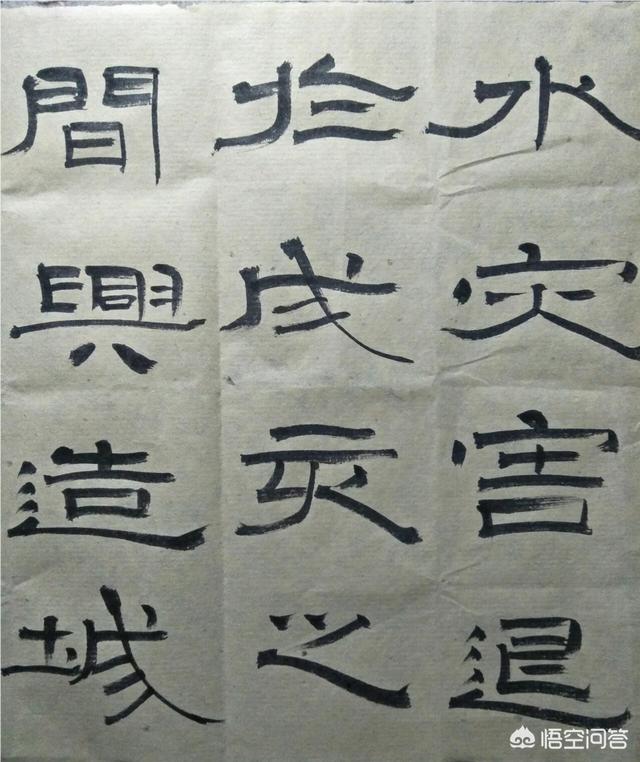 水灾害退
於戌亥之
間興造城
悟空问答